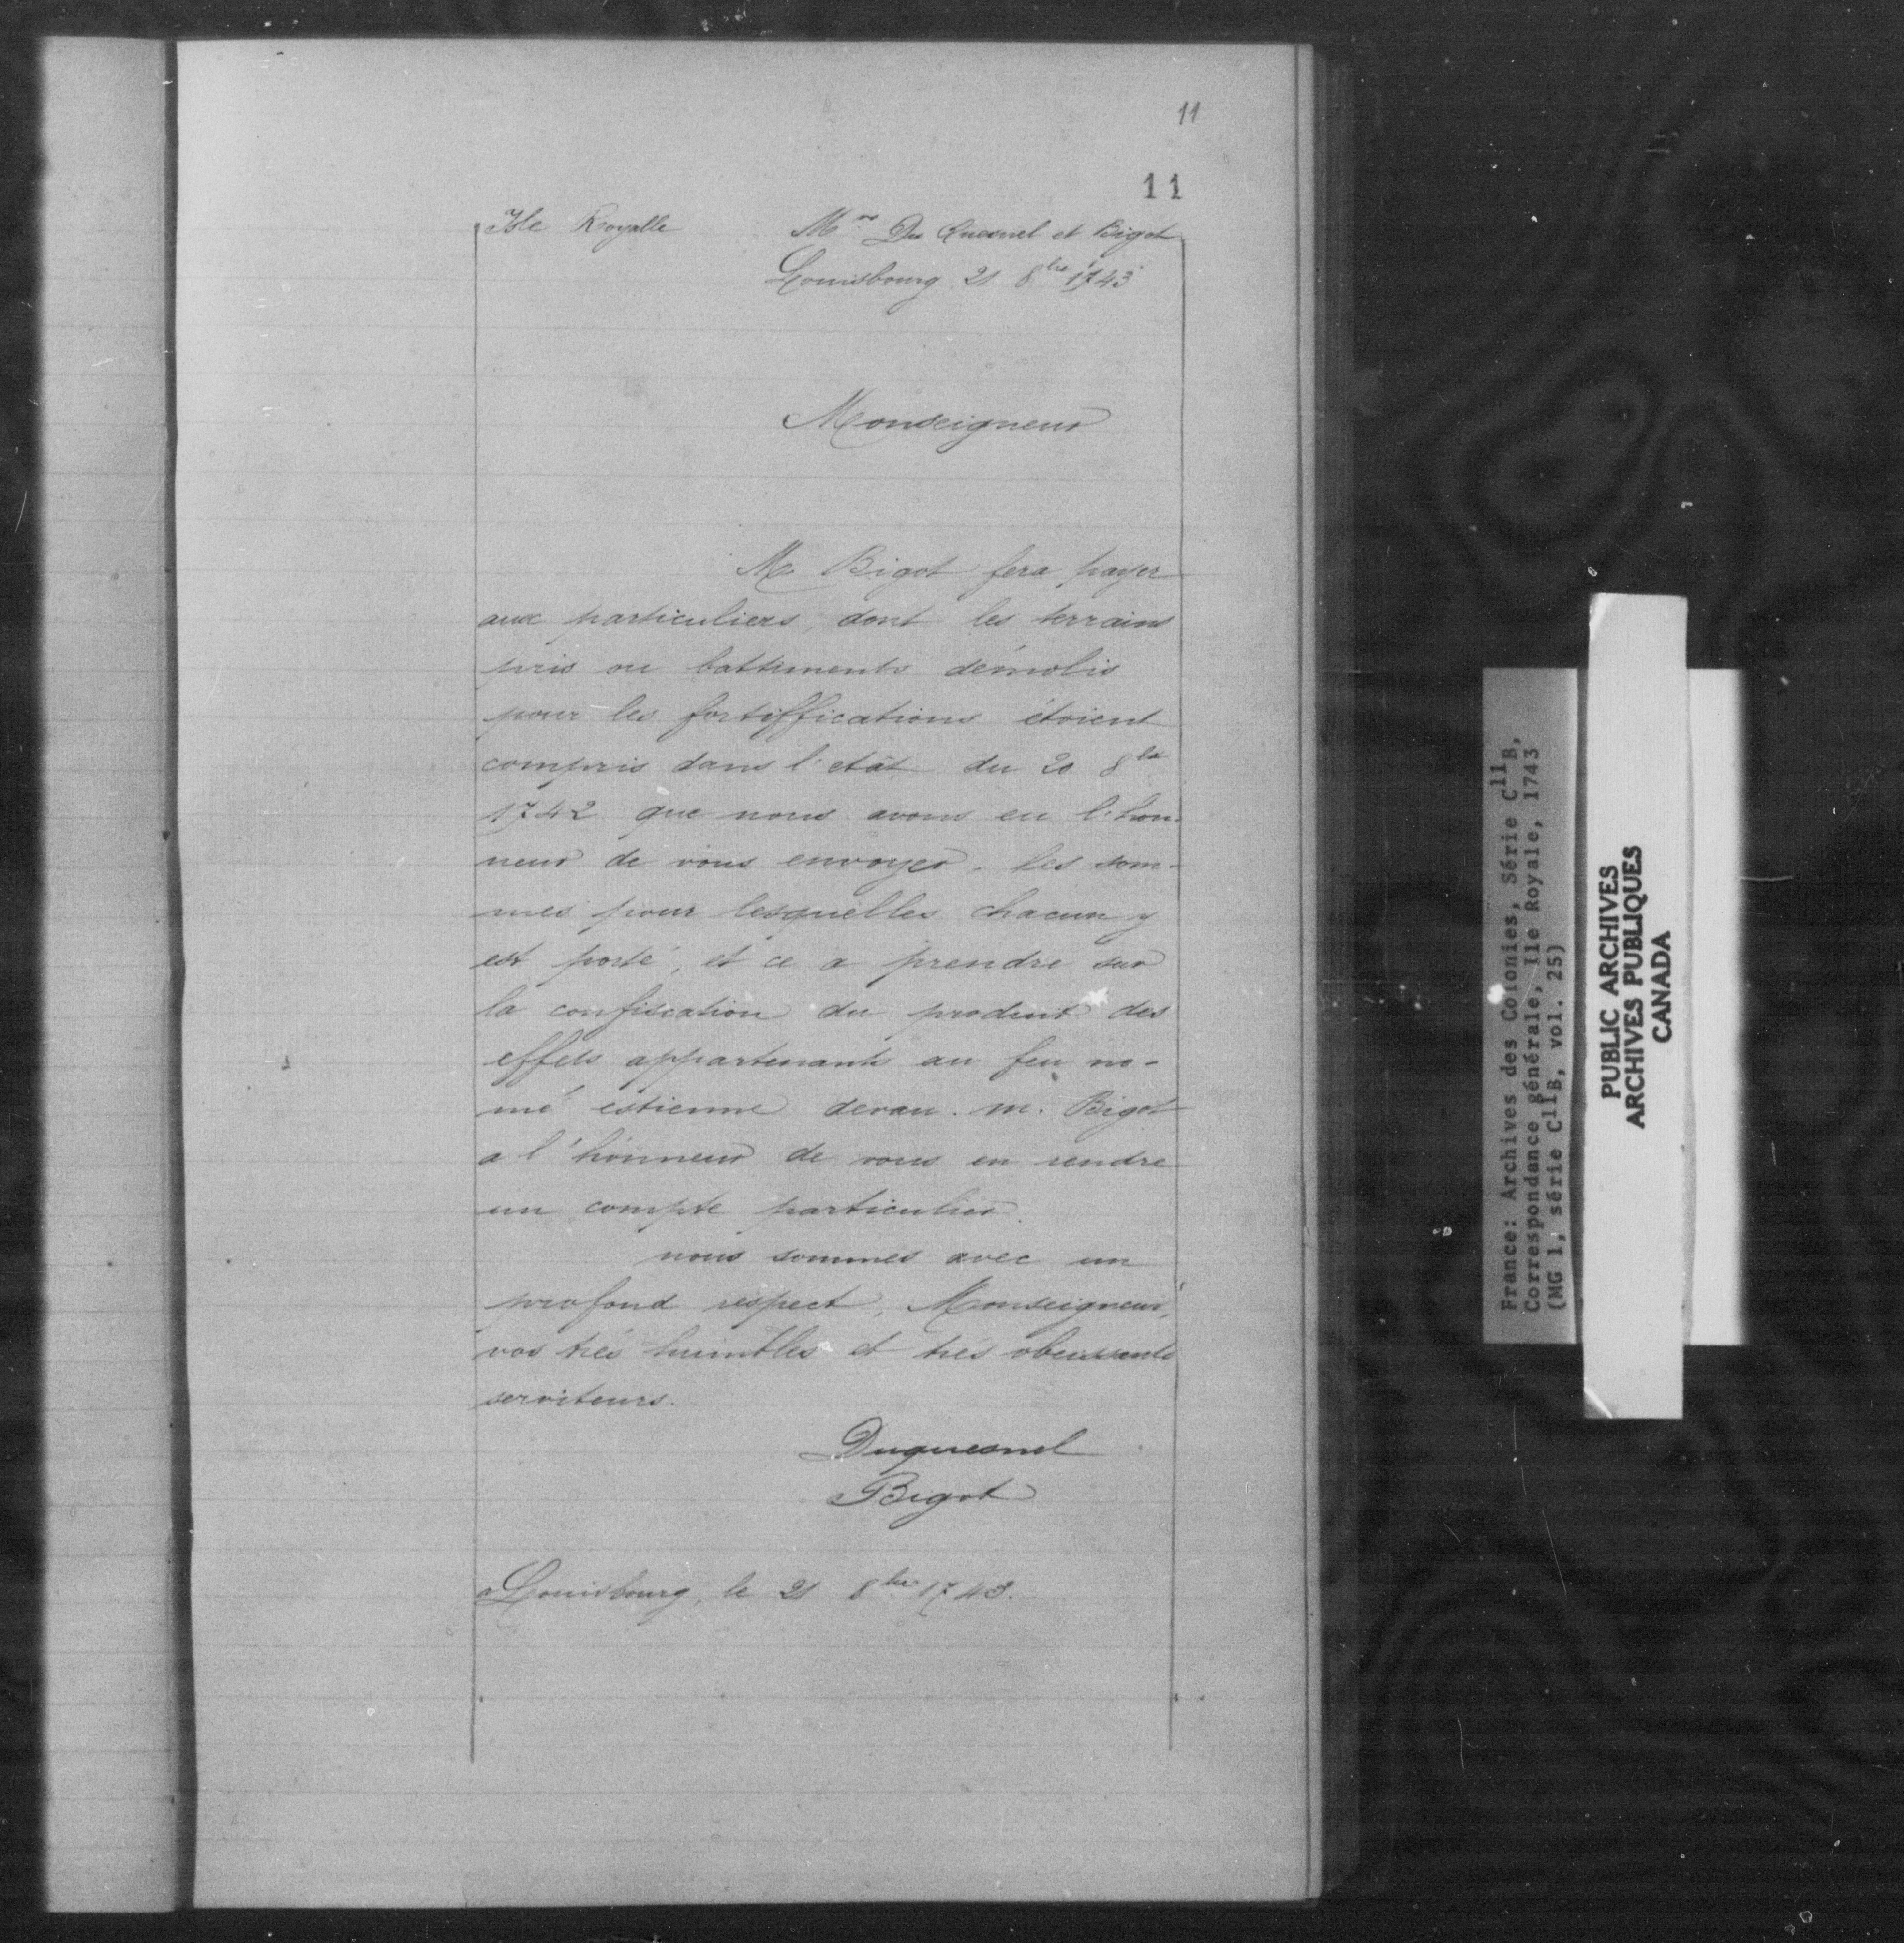 11
11
Isle Royalle
Mrs Du Quesnel et Bigot
Louisbourg 21 8bre 1743
Monseigneur
M. Bigot fera payer
aux particuliers, dont les terrains
pris ou battiments démolis
pour les fortiffications étoient
compris dans l'etât du 20 8bre
1742 que nous avons eu l'hon-
neur de vous envoyer. les som-
mes pour lesquelles chacun y
est porté, et ce a prendre sur
la confiscation du produit des
effets appartenants au feu no-
mé estienne devau. m. Bigot
a l'honneur de vous en rendre
un compte particulier.
nous sommes avec un
profond respect, Monseigneur,
vos très humbles et très obeissants
serviteurs.
Duquesnel
Bigot
a Louisbourg, le 21 8bre 1743.
France: Archives des Colonies, Série C11B,
Correspondance générale, Ile Royale, 1743
(MG 1, série C11B, vol. 25)
PUBLIC ARCHIVES
ARCHIVES PUBLIQUES
CANADA